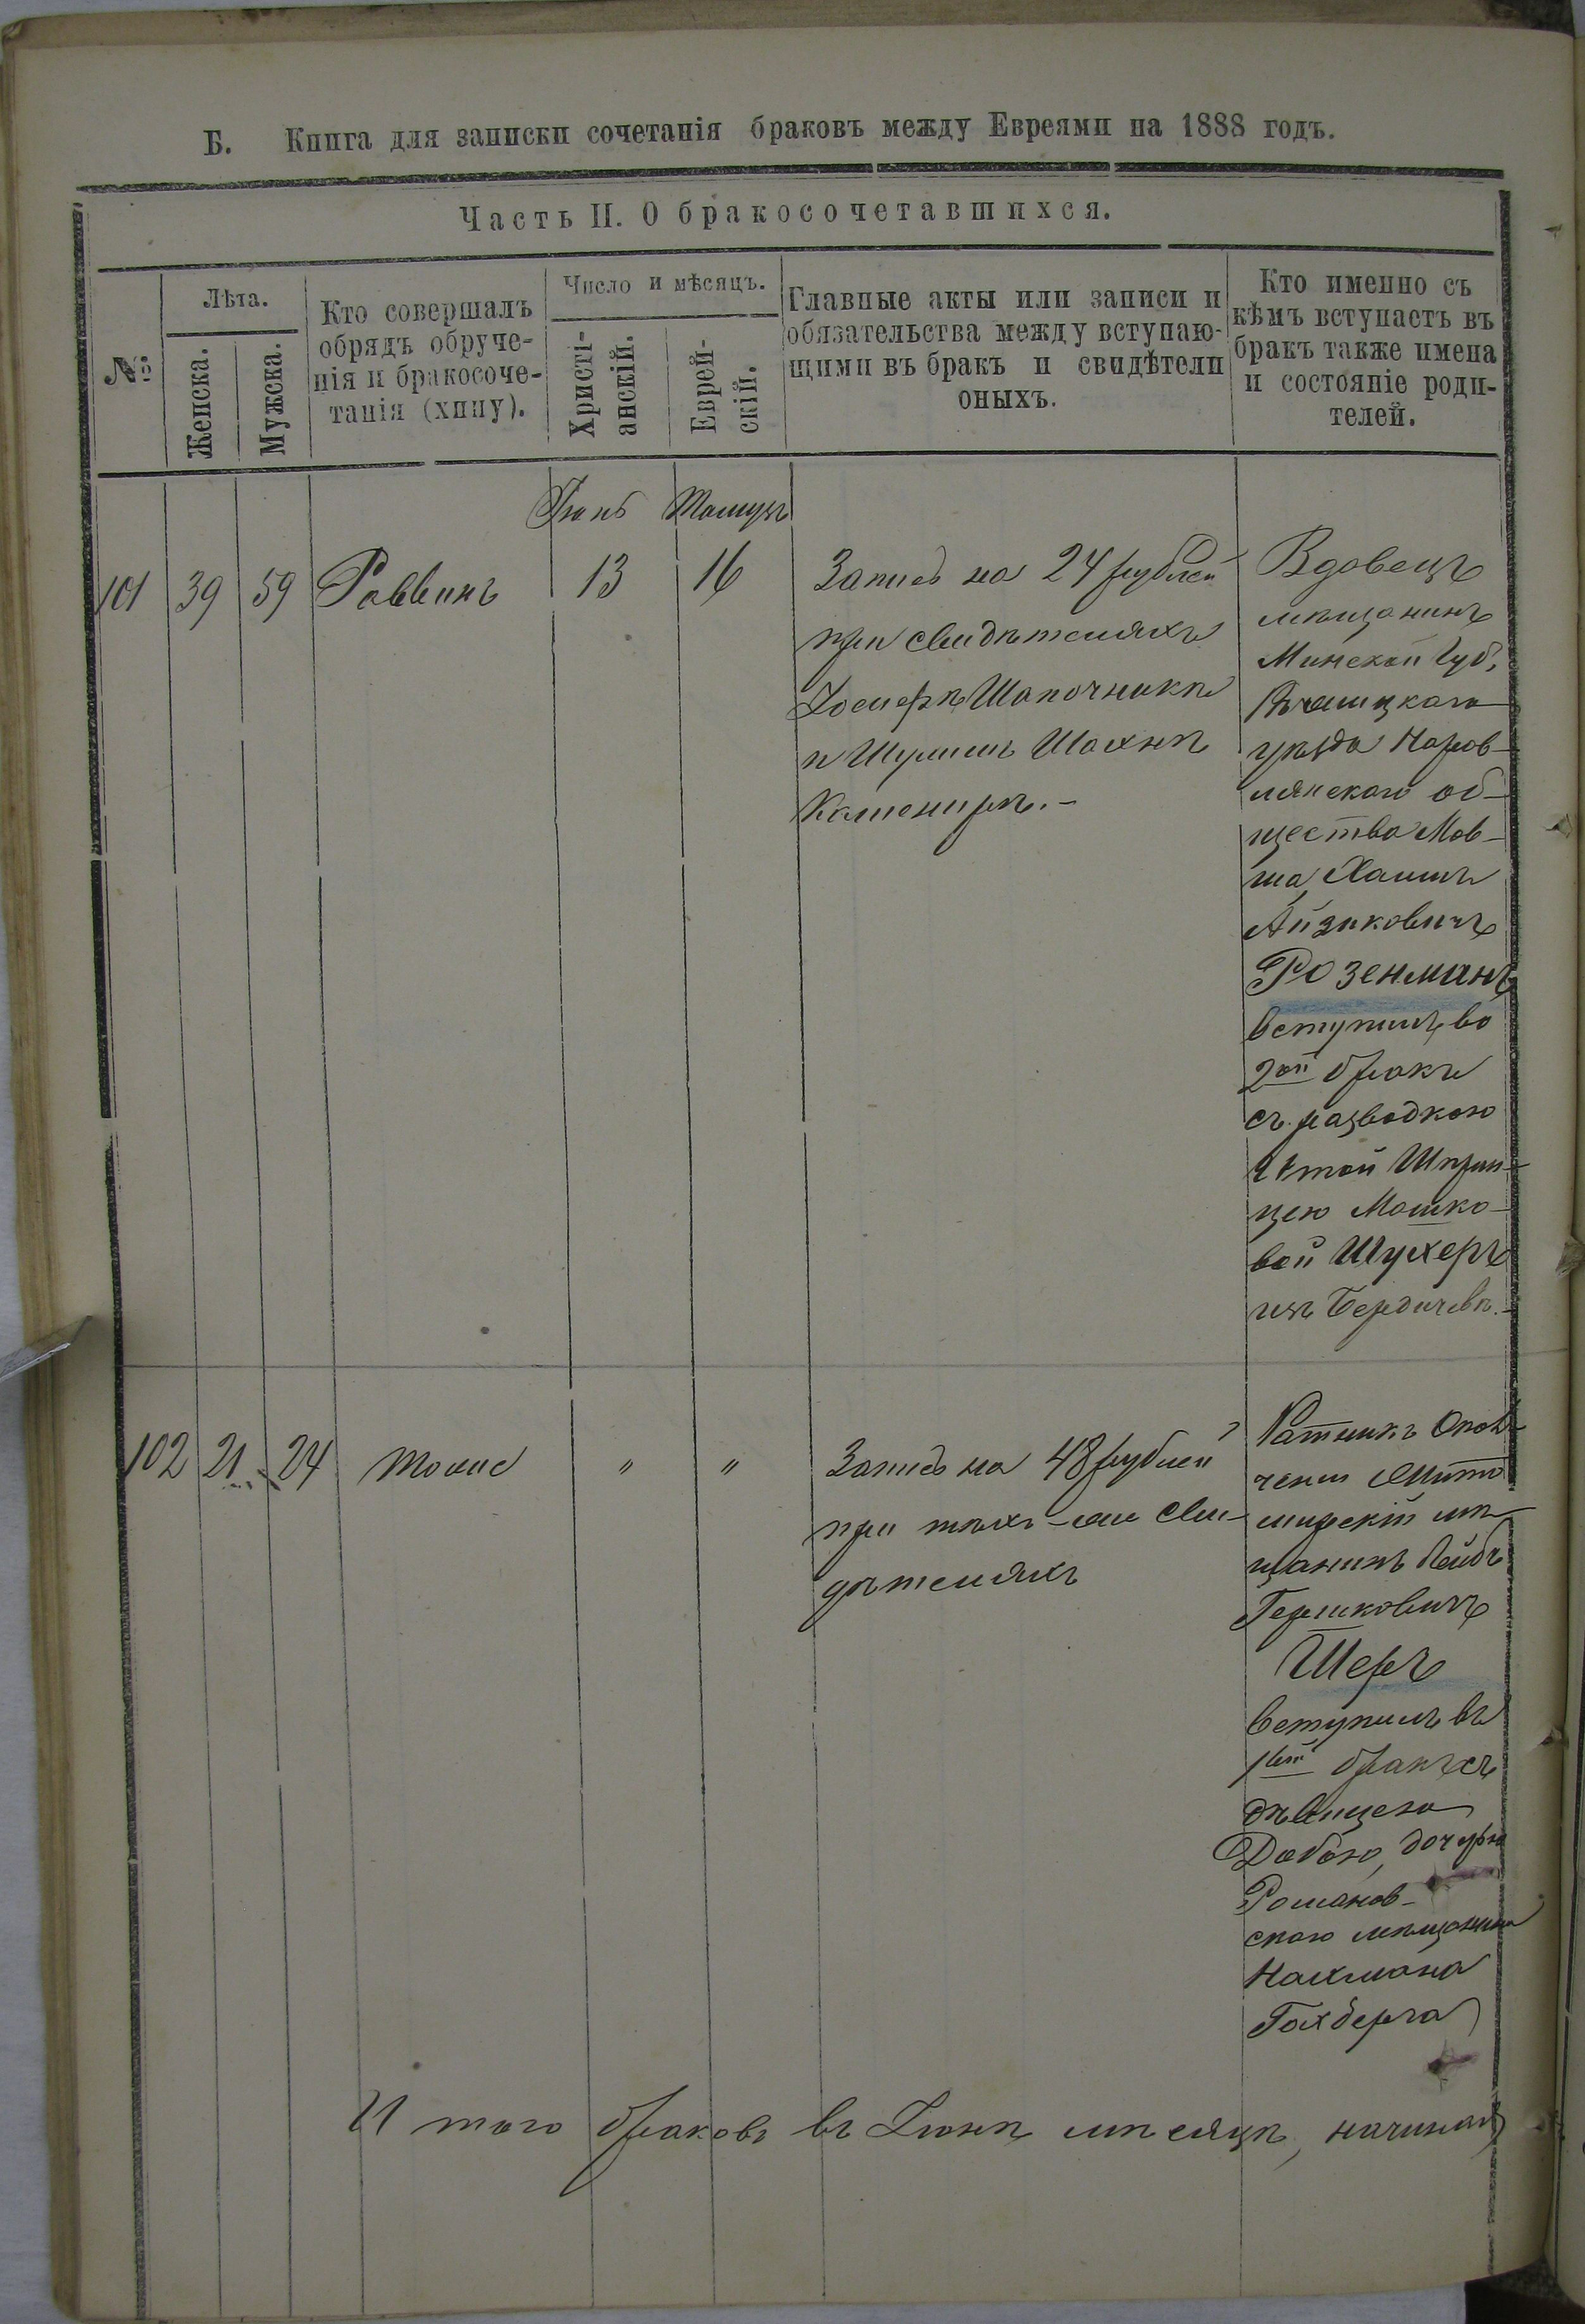 Б. Книга для записки сочетанія браковъ между Евреями на 1888 годъ.
Часть II. О бракосочетавшихся.
№
Лѣта.
Женска.
Мужска.
Кто совершалъ
обрядъ обруче-
нія и бракосоче-
танія (хппу).
Число и мѣсяцъ.
Христі-
анскій.
Еврей-
скій.
Главные акты или записи и
обязательства между вступаю-
щими въ бракъ и свидѣтели
оныхъ.
Кто именно съ
кѣмъ вступаетъ въ
бракъ также имена
и состояніе роди-
телей.
Іюнь Тамузъ
101 39 59 Раввинъ 13 16
Запись на 24 рублей
при свидѣтеляхъ
Іосифѣ Шапочникѣ
и Шулимъ Шахнѣ
Каменирѣ.-
Вдовецъ
мѣщанинъ
Минской Губ.
Рѣчицкаго
уѣзда Наров-
лянскаго об-
щества Мов-
ша Хаимъ
Айзиковичъ
Розенманъ
вступилъ во
2ой бракъ
съ разводкою
Итой Шприн-
цею Мошко-
вой Шухеръ
изъ Бердичева.-
102 21 24 тоже " "
Запись на 48 рублей
при тѣхъ-же сви-
дѣтеляхъ
Ратникъ Опол-
ченія Жито
мирскій мѣ-
щанинъ Лейбъ
Гершковичъ
Шеръ
вступилъ въ
1ый бракъ съ
дѣвицею
Добою, дочерью
Романов-
скаго мѣщанина
Нахмана
Гохберга
И того браковъ въ Іюнѣ мѣсяцѣ, начиная